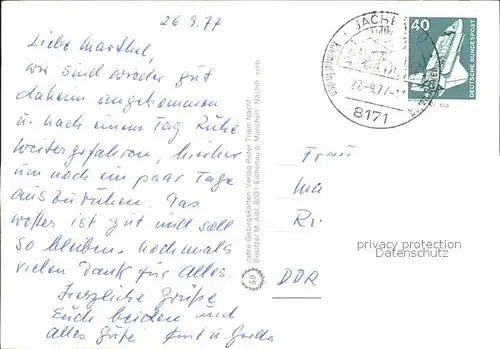 26.9.77
Liebe Marthel,
wir sind wieder gut
daheim angekommen
u. nach einem Tag Ruhe
weitergefahren, hierher
um noch ein paar Tage
auszuruhen. Das
Wetter ist gut und soll
so bleiben. Nochmals
vielen Dank für Alles.
Herzliche Grüße
Euch beiden und
alles Gute
u.
Jahre Gebirgskarten-Verlag Peter Triem Nachf.
Besitzer M. Aibl, 8031 Eichenau b. München Nachdr. verb.
50
JACHENAU
27.-9.77
8171
40
DEUTSCHE BUNDESPOST
Frau
Ma
Ri
DDR
privacy protection
Datenschutz